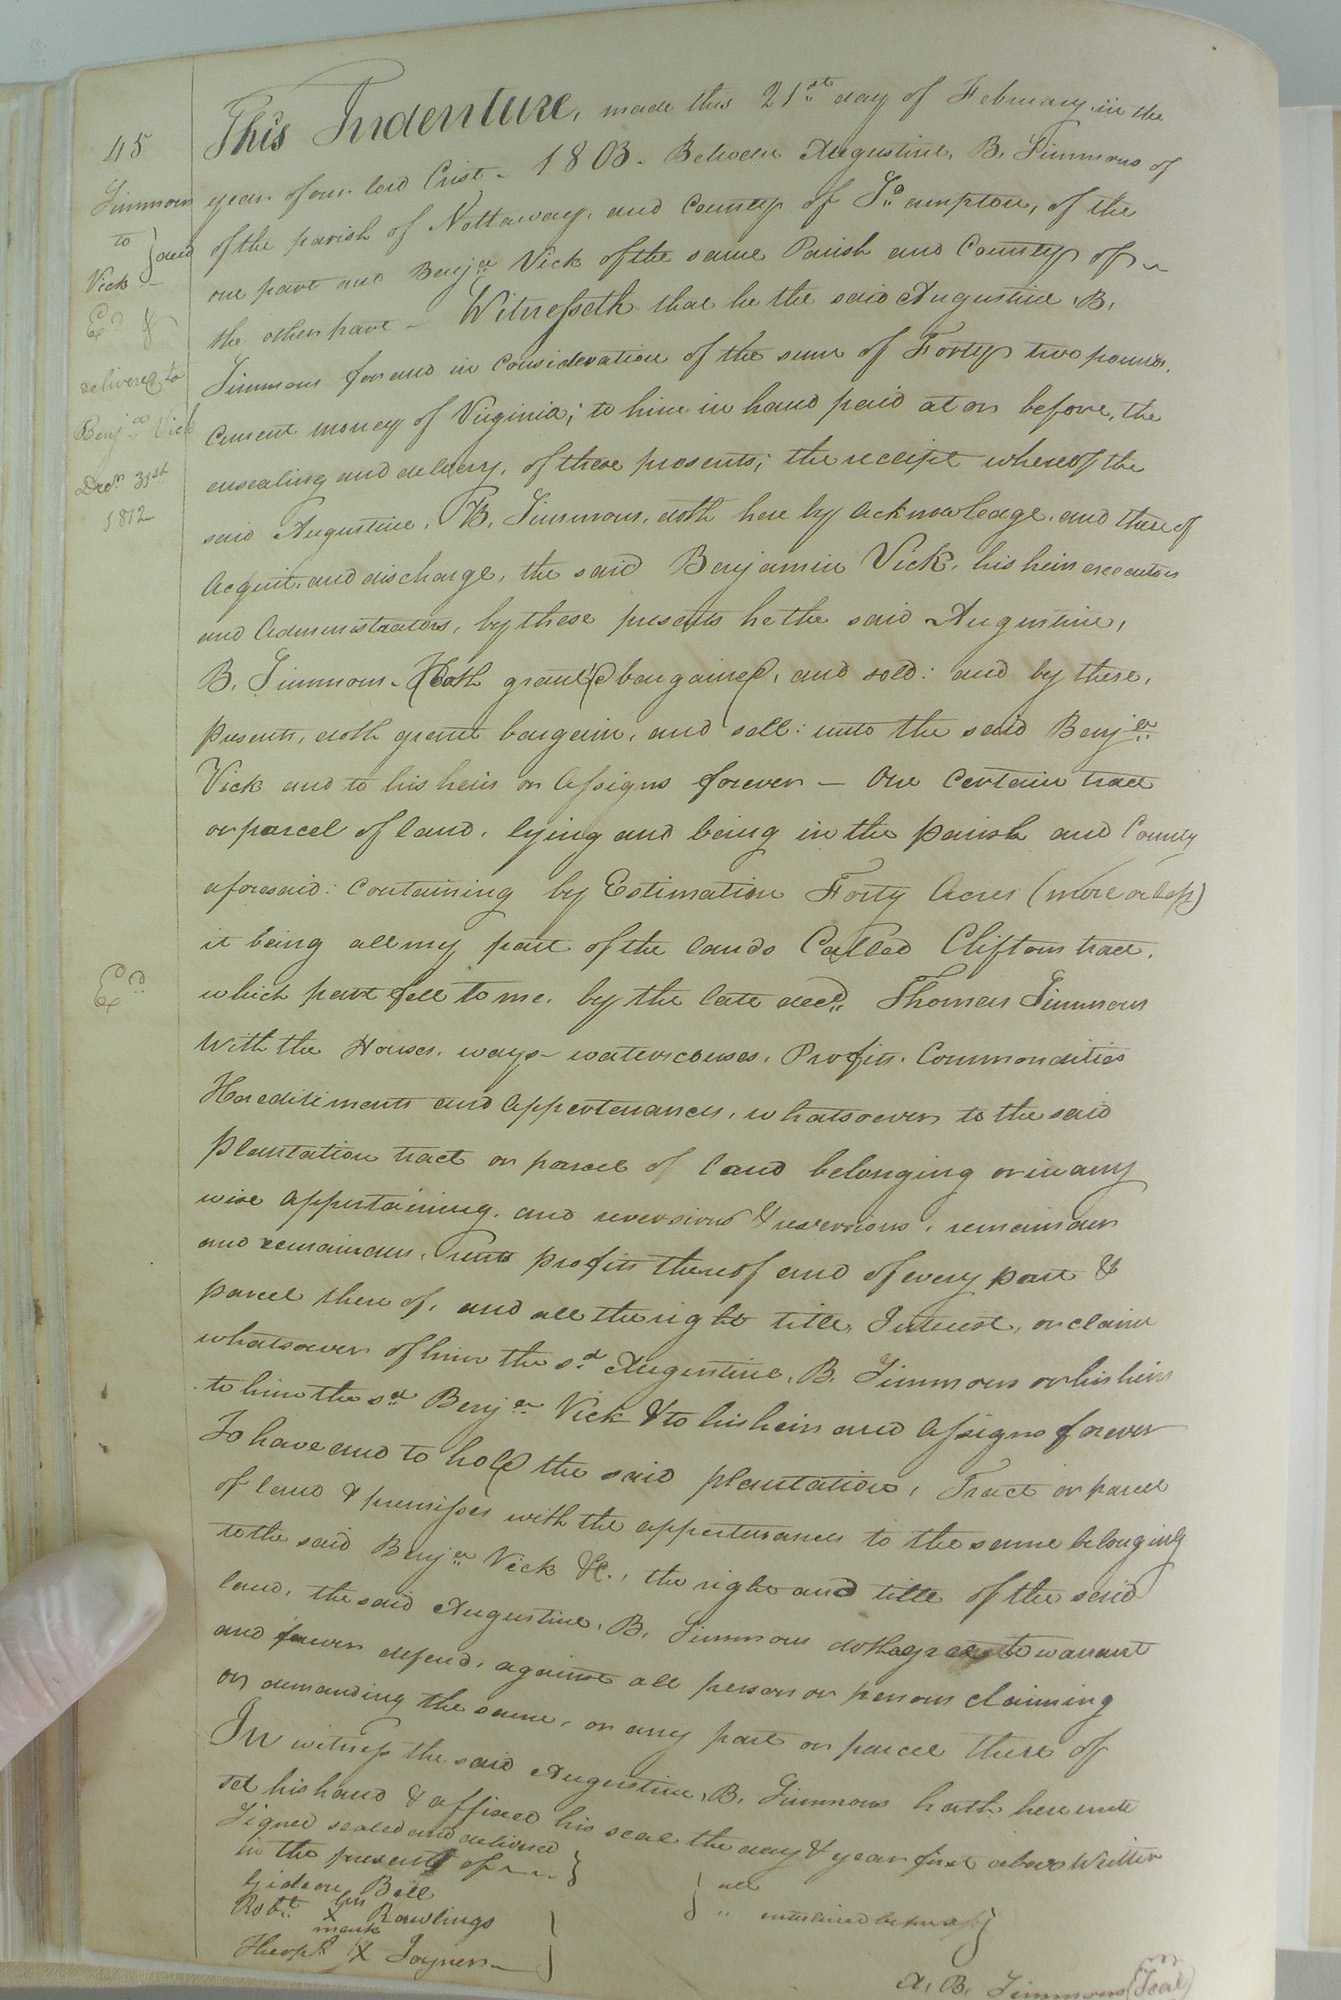 45
Simmons
to } deed
Vick
Exd &
delivered to
Benja Vick
Decr 31st
1812
Exd
This Indenture, made this 21st day of February in the
year of our lord Crist - 1803 - Between Augustine, B, Simmons of
of the parish of Nottaway, and County of So ampton, of the
one part and Benja Vick of the same Parish and County of
the other part - Witnesseth that he the said Augustine, B,
Simmons for and in consideration of the sum of Forty two pounds,
Current money of Virginia; to him in hand paid at or before, the
ensealing and delivery, of these presents; the receipt whereof the
said Augustine, B, Simmons, doth here by acknowledge, and there of
acquit, and discharge, the said Benjamin Vick, his heirs executors
and administrators, by these presents he the said Augustine,
B, Simmons - Hath granted bargained, and sold: and by these,
presents, doth grant bargain, and sell: unto the said Benja
Vick and to his heirs or assigns forever - One Certain tract
or parcel of land, lying and being in the parish and County
aforesaid: Containing by Estimation Forty acres (more or less)
it being all my part of the lands Called Cliftons tract,
which part fell to me, by the late decd Thomas Simmons
With the Houses, ways - waterscouses, Profits, Commondities
Hereditiments and appertenances, whatsoever to the said
plantation tract or parcel of land belonging or in any
wise appertaining, and reversions & reversions, remainder
and remainders, rents profits thereof and of every part &
parcel there of, and all the right title, Interest, or claim
whatsoever of him the sd Augustine, B, Simmons or his heirs
to him the sd Benja Vick & to his heirs and assigns forever
To have and to hold the said plantation, Tract or parcel
of land & premisses with the appertenances to the same belonging
to the said Benja Vick &c., the right and title of the said
land, the said Augustine, B, Simmons doth agree to warrant
and forever defend, against all person or persons claiming
or demanding the same, or any part or parcel there of
In witness the said Augustine, B, Simmons hath here unto
set his hand & affixed his seal the day & year first above Written
Signed sealed and delivered
in the presents of }
Gideon Bell
his
Robt X Rawlings
mark
Theopl X Joyner
A, B, Simmons (Seal)